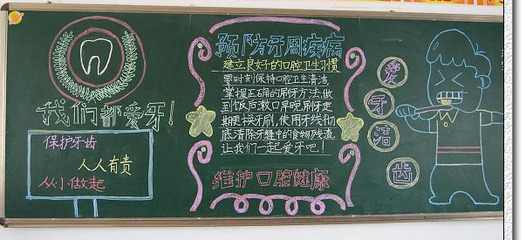 我们都爱牙!
保护牙齿
人人有责
从小做起
预防牙周疾病
建立良好的口腔卫生习惯
要时刻保持口腔卫生清洁
掌握正确的刷牙方法做
到饭后漱口早晚刷牙定
期更换牙刷,使用牙线彻
底清除牙缝中的食物残渣
让我们一起爱牙吧!
维护口腔健康
爱
牙
洁
齿